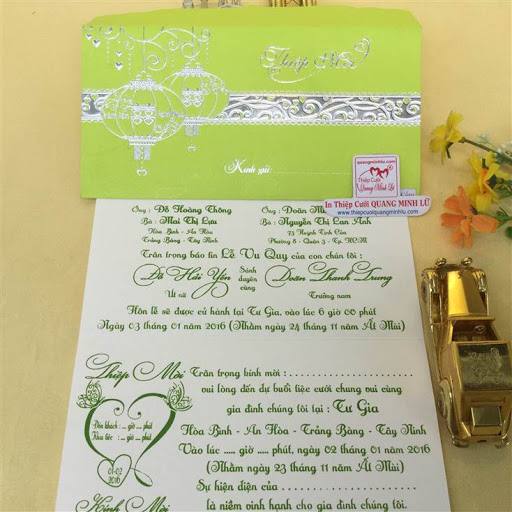 Thiệp Mời
Kính gửi
quangminhlu.com
Thiệp Cưới
Quang Minh Lữ
In Thiệp Cưới QUANG MINH LỮ
www.thiepcuoiquangminhlu.com
Ông : Đỗ Hoàng Thông
Bà : Mai Thị Lựu
Hòa Bình - An Hòa
Trảng Bàng - Tây Ninh
Ông : Doãn
Bà : Nguyễn Thị Lan Anh
73 Huỳnh Tịnh Của
Phường 8 - Quận 3 - Tp. HCM
Trân trọng báo tin Lễ Vu Quy của con chúng tôi :
Đỗ Hải Yến Sánh duyên cùng Doãn Thanh Trung
Út nữ Trưởng nam
Hôn lễ sẽ được cử hành tại Tư Gia, vào lúc 6 giờ 00 phút
Ngày 03 tháng 01 năm 2016 (Nhằm ngày 24 tháng 11 năm Ất Mùi)
Thiệp Mời
Trân trọng kính mời : . . . . . . . . . . . . . . . . . . . .
vui lòng đến dự buổi tiệc cưới chung vui cùng
gia đình chúng tôi tại : Tư Gia
Hòa Bình - An Hòa - Trảng Bàng - Tây Ninh
Vào lúc ..... giờ ..... phút, ngày 02 tháng 01 năm 2016
(Nhằm ngày 23 tháng 11 năm Ất Mùi)
Sự hiện diện của . . . . . . . . . . . . . . . . . . . .
là niềm vinh hạnh cho gia đình chúng tôi.
Đón khách : ... giờ ... phút
Khai tiệc : ... giờ ... phút
01-02
2016
Kính Mời